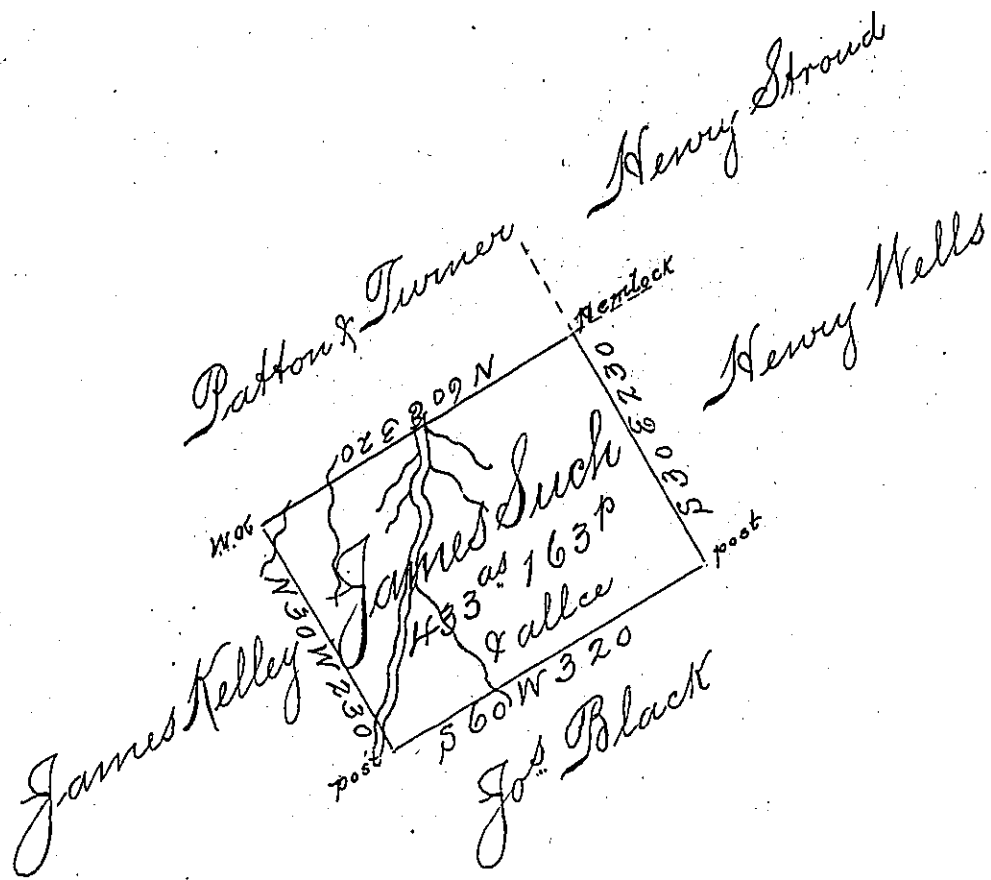 Henry Stroud
Patton & Turner
Hemlock
Henry Wells
N 60 E 320
S 30 E 230
W.O.
James Such
433 as. 163 p
& allce
post
James Kelley
N 30 W 230
S 60 W 320
post
Jos. Black